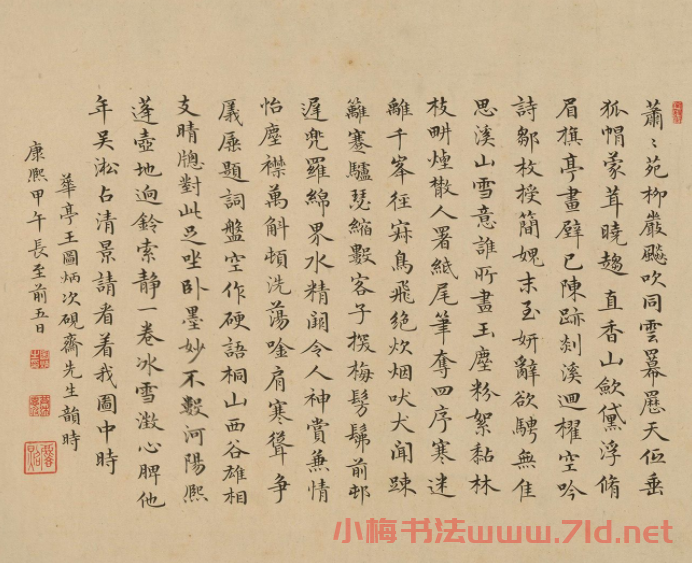 蕭〻苑柳嚴飈吹同雲羃天低垂
狐帽蒙茸曉趨直香山斂黛浮脩
眉旗亭畫壁已陳跡剡溪迴櫂空吟
詩鄒枚授簡媿末至妍辭欲騁無佳
思溪山雪意誰所畫玉塵粉絮黏林
枝畊煙散人署紙尾筆奪四序寒迷
離千峯徑寂鳥飛絕炊烟吠犬聞踈
籬蹇驢瑟縮數客子探梅髣髴前邨
遲兜羅綿界水精闕令人神賞兼情
怡塵襟萬斛頓洗蕩唫肩寒聳爭
屭題詞盤空作硬語桐山西谷雄相
支晴牕對此足坐卧墨妙不數河陽熙
蓬壺地迥鈴索靜一卷冰雪澂心脾他
年吴淞占清景請君着我圖中時
華亭王圖炳次硯齋先生韻時
康熙甲午長至前五日
小梅书法www.7ld.net